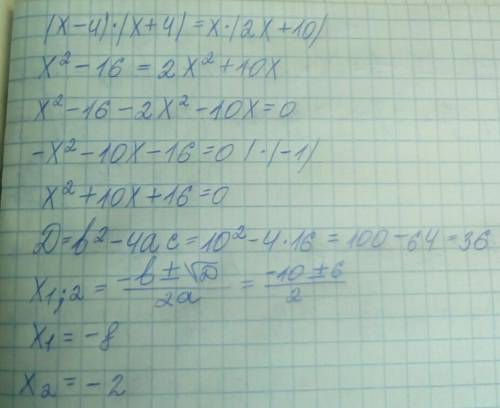 (x-4)·(x+4)=x·(2x+10)
x²-16=2x²+10x
x²-16-2x²-10x=0
-x²-10x-16=0 (·(-1)
x²+10x+16=0
D=b²-4ac=10²-4·16=100-64=36
x₁;₂ = (-b±√D)/2a = (-10±6)/2
x₁=-8
x₂=-2